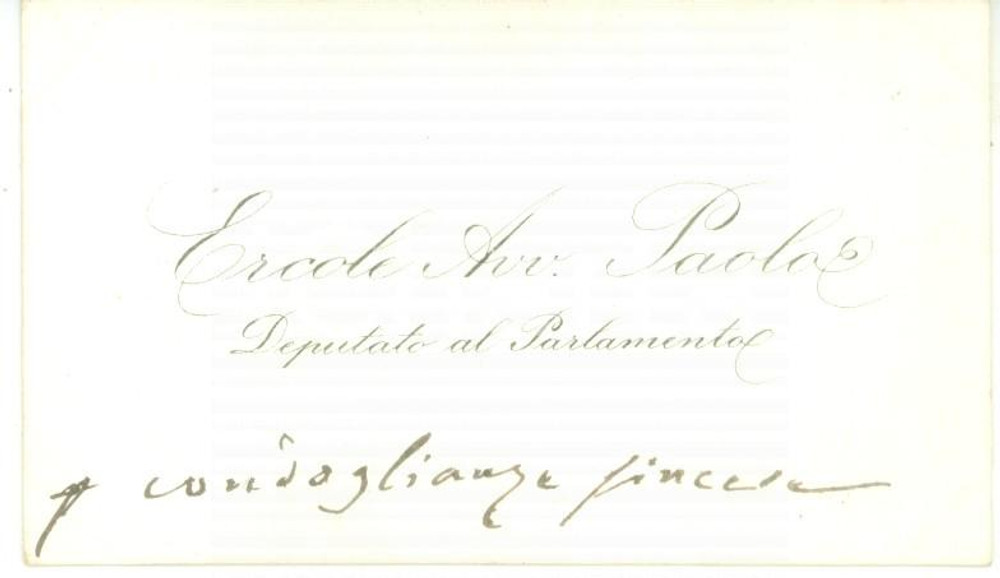 Ercole Avv. Paolo
Deputato al Parlamento
p condoglianze sincere